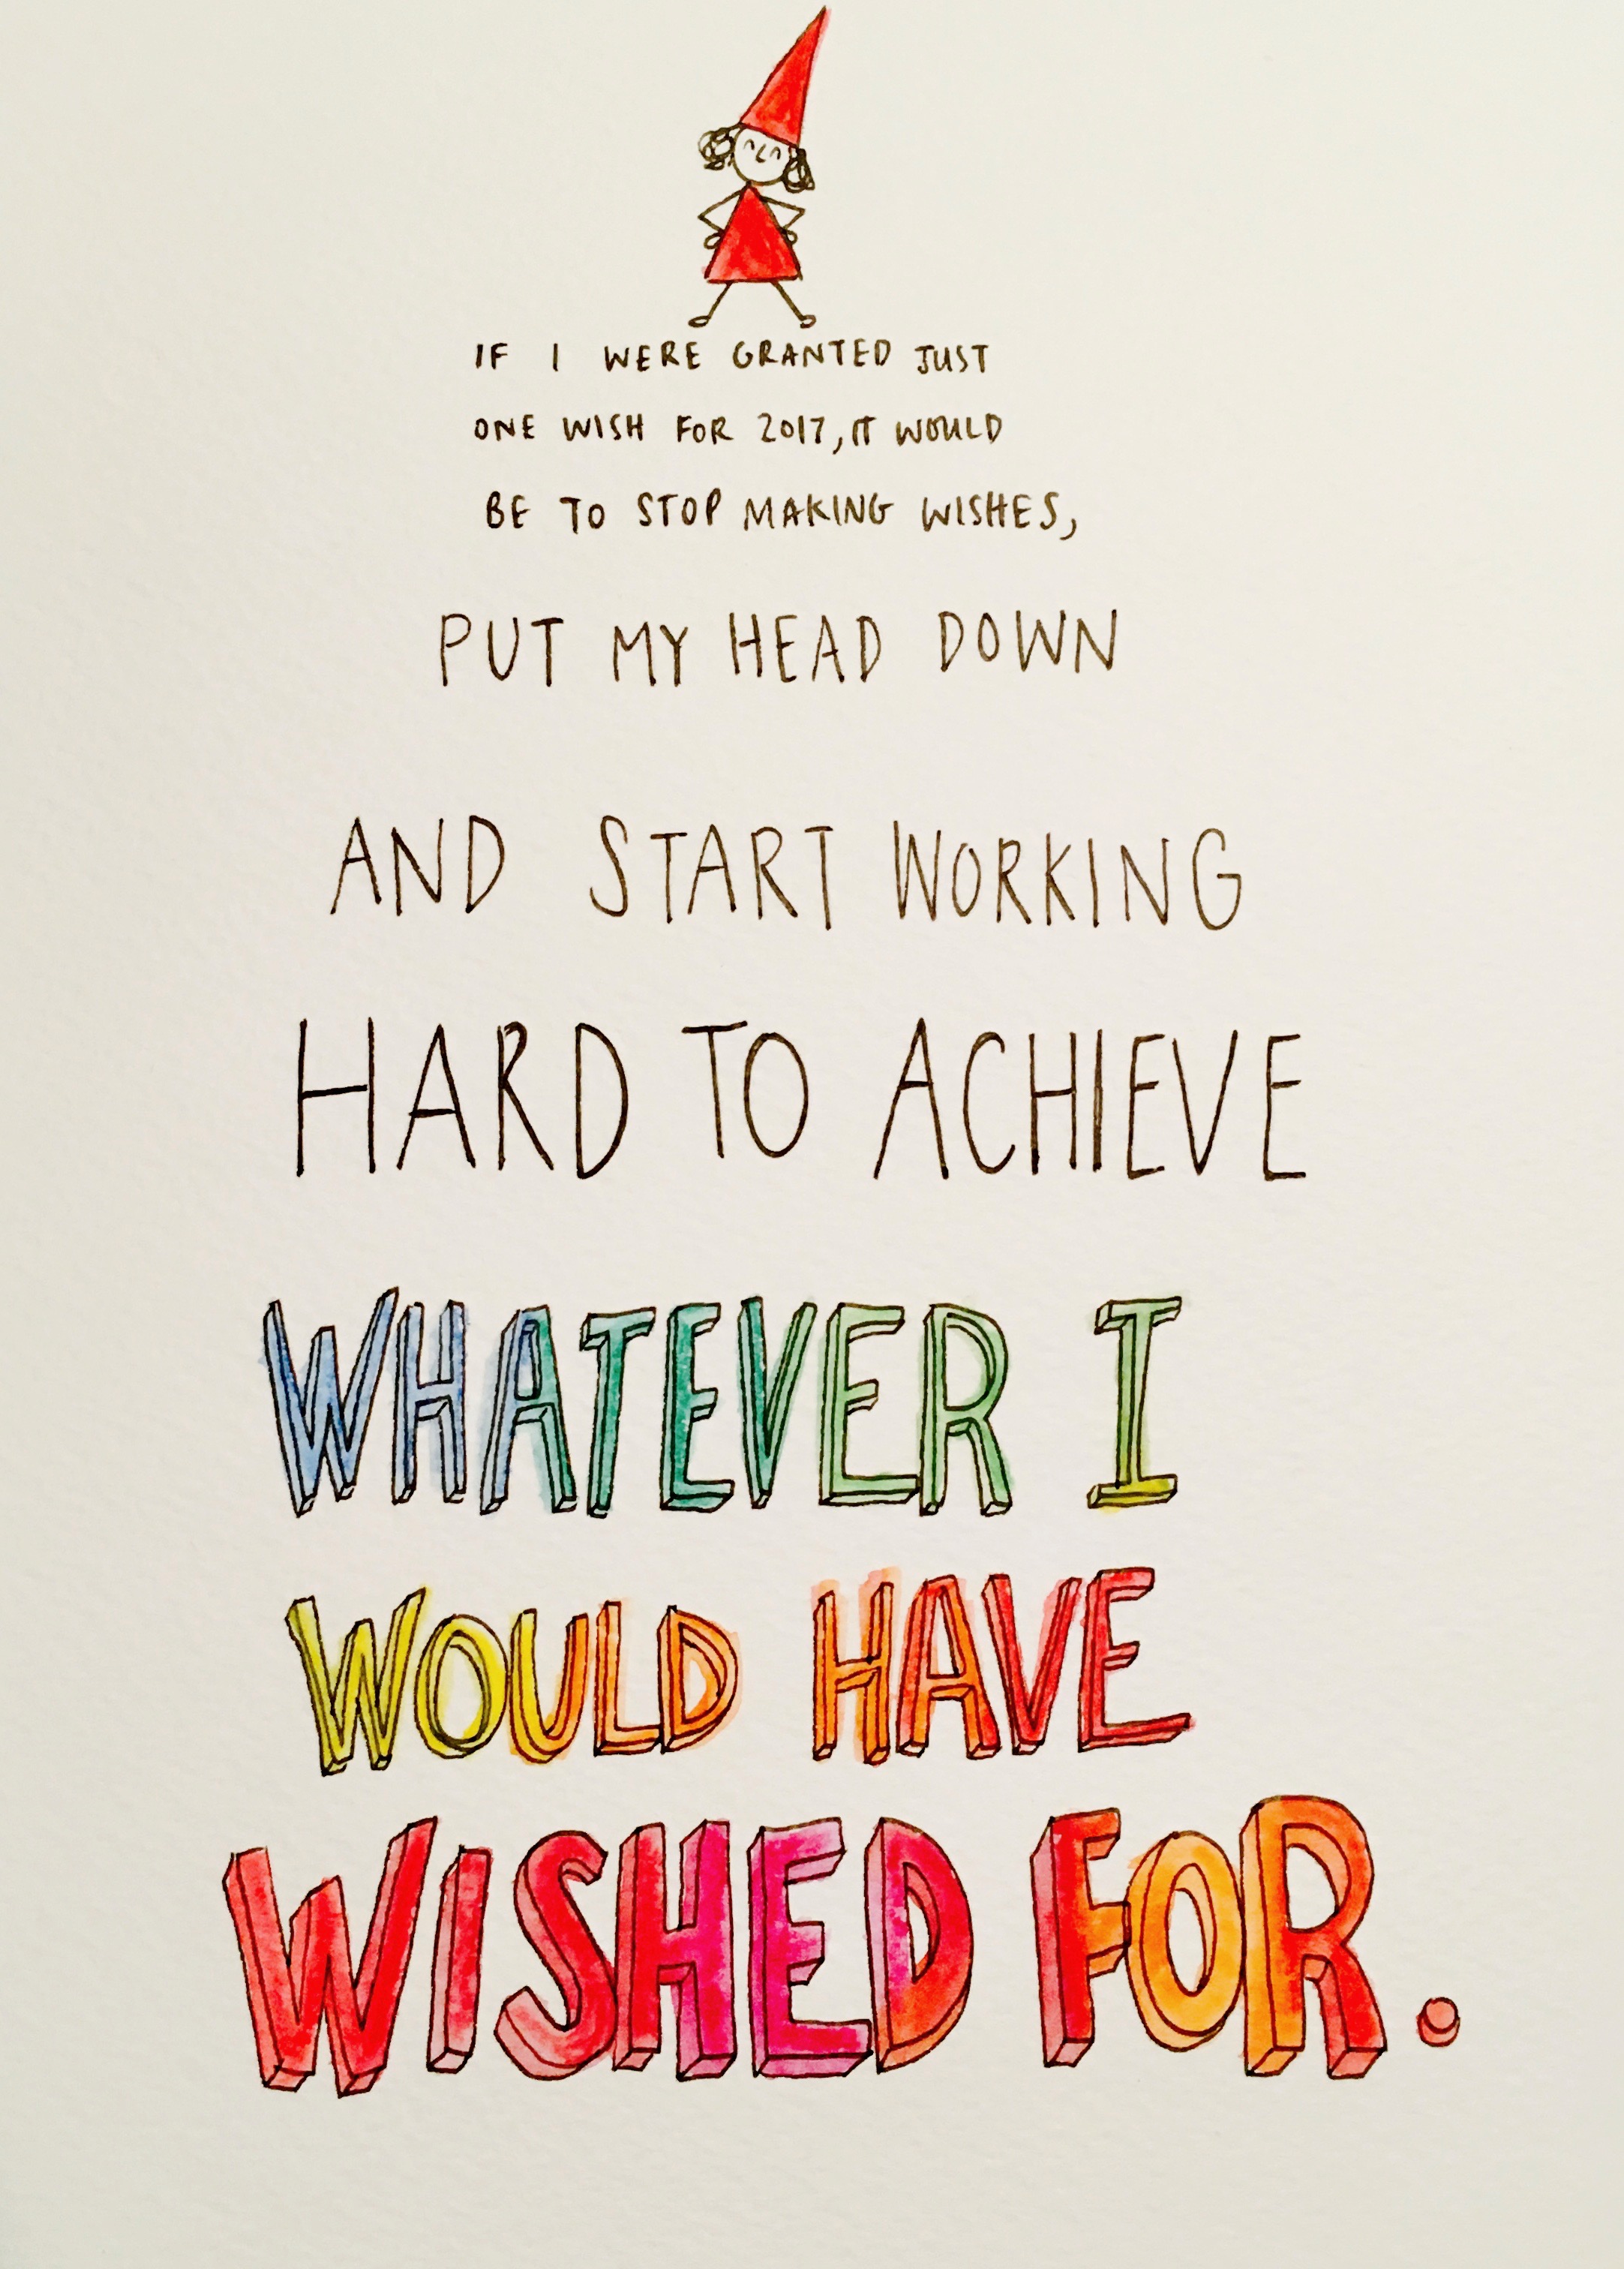 IF I WERE GRANTED JUST
ONE WISH FOR 2017, IT WOULD
BE TO STOP MAKING WISHES,
PUT MY HEAD DOWN
AND START WORKING
HARD TO ACHIEVE
WHATEVER I
WOULD HAVE
WISHED FOR.